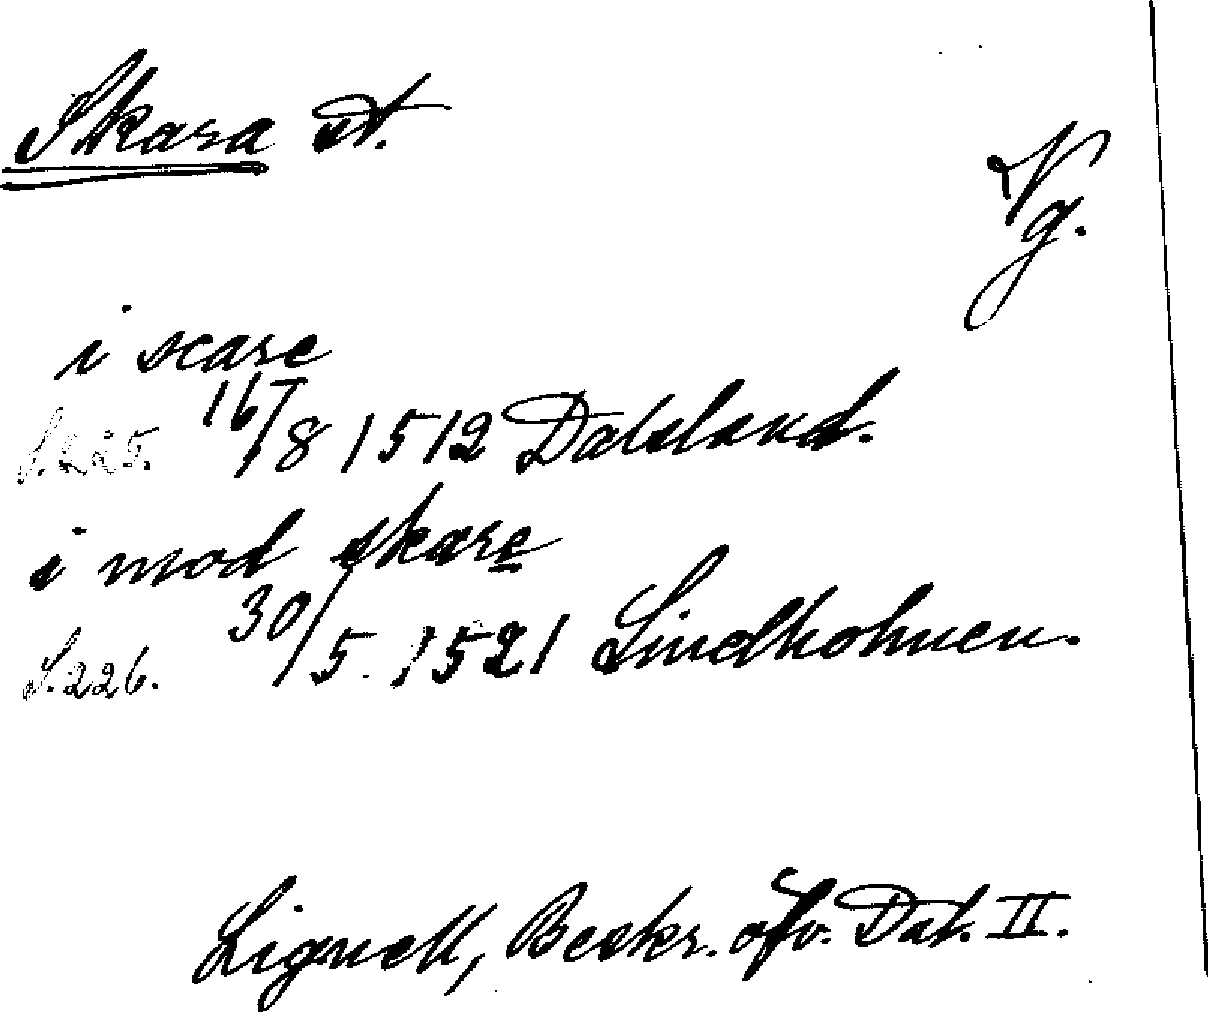 Skara st.
Vg.
i scare
S. 225. 16/8 1512 Dalsland.
i mod skare
S. 226. 30/5. 1521 Lindholmen.
Lignell, Beskr. öfv. Dal. II.